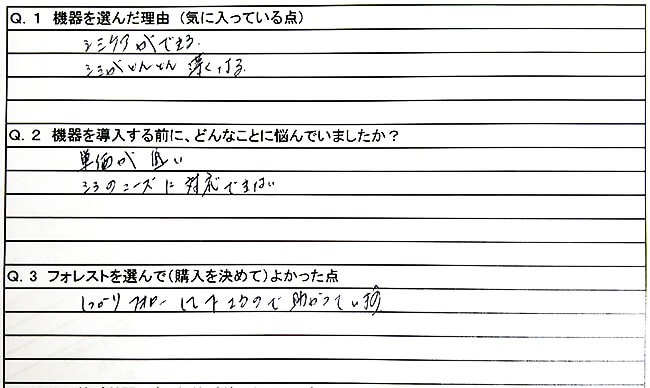 Q.1 機器を選んだ理由（気に入っている点）
シミケアができる.
シミがどんどん薄くなる.
Q.2 機器を導入する前に、どんなことに悩んでいましたか？
単価が低い
シミのニーズに対応できない
Q.3 フォレストを選んで（購入を決めて）よかった点
しっかりフォローして下さるので助かっています